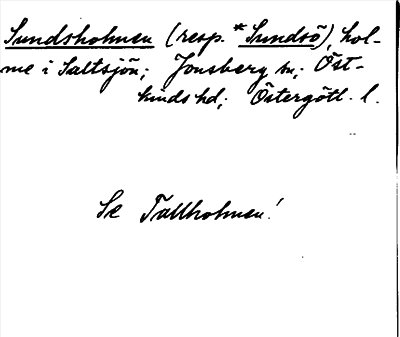 Sundsholmen (resp. *Sundsö), hol-
me i Saltsjön; Jonsberg sn; Öst-
kinds hd; Östergötl. l.
Se Tallholmen!